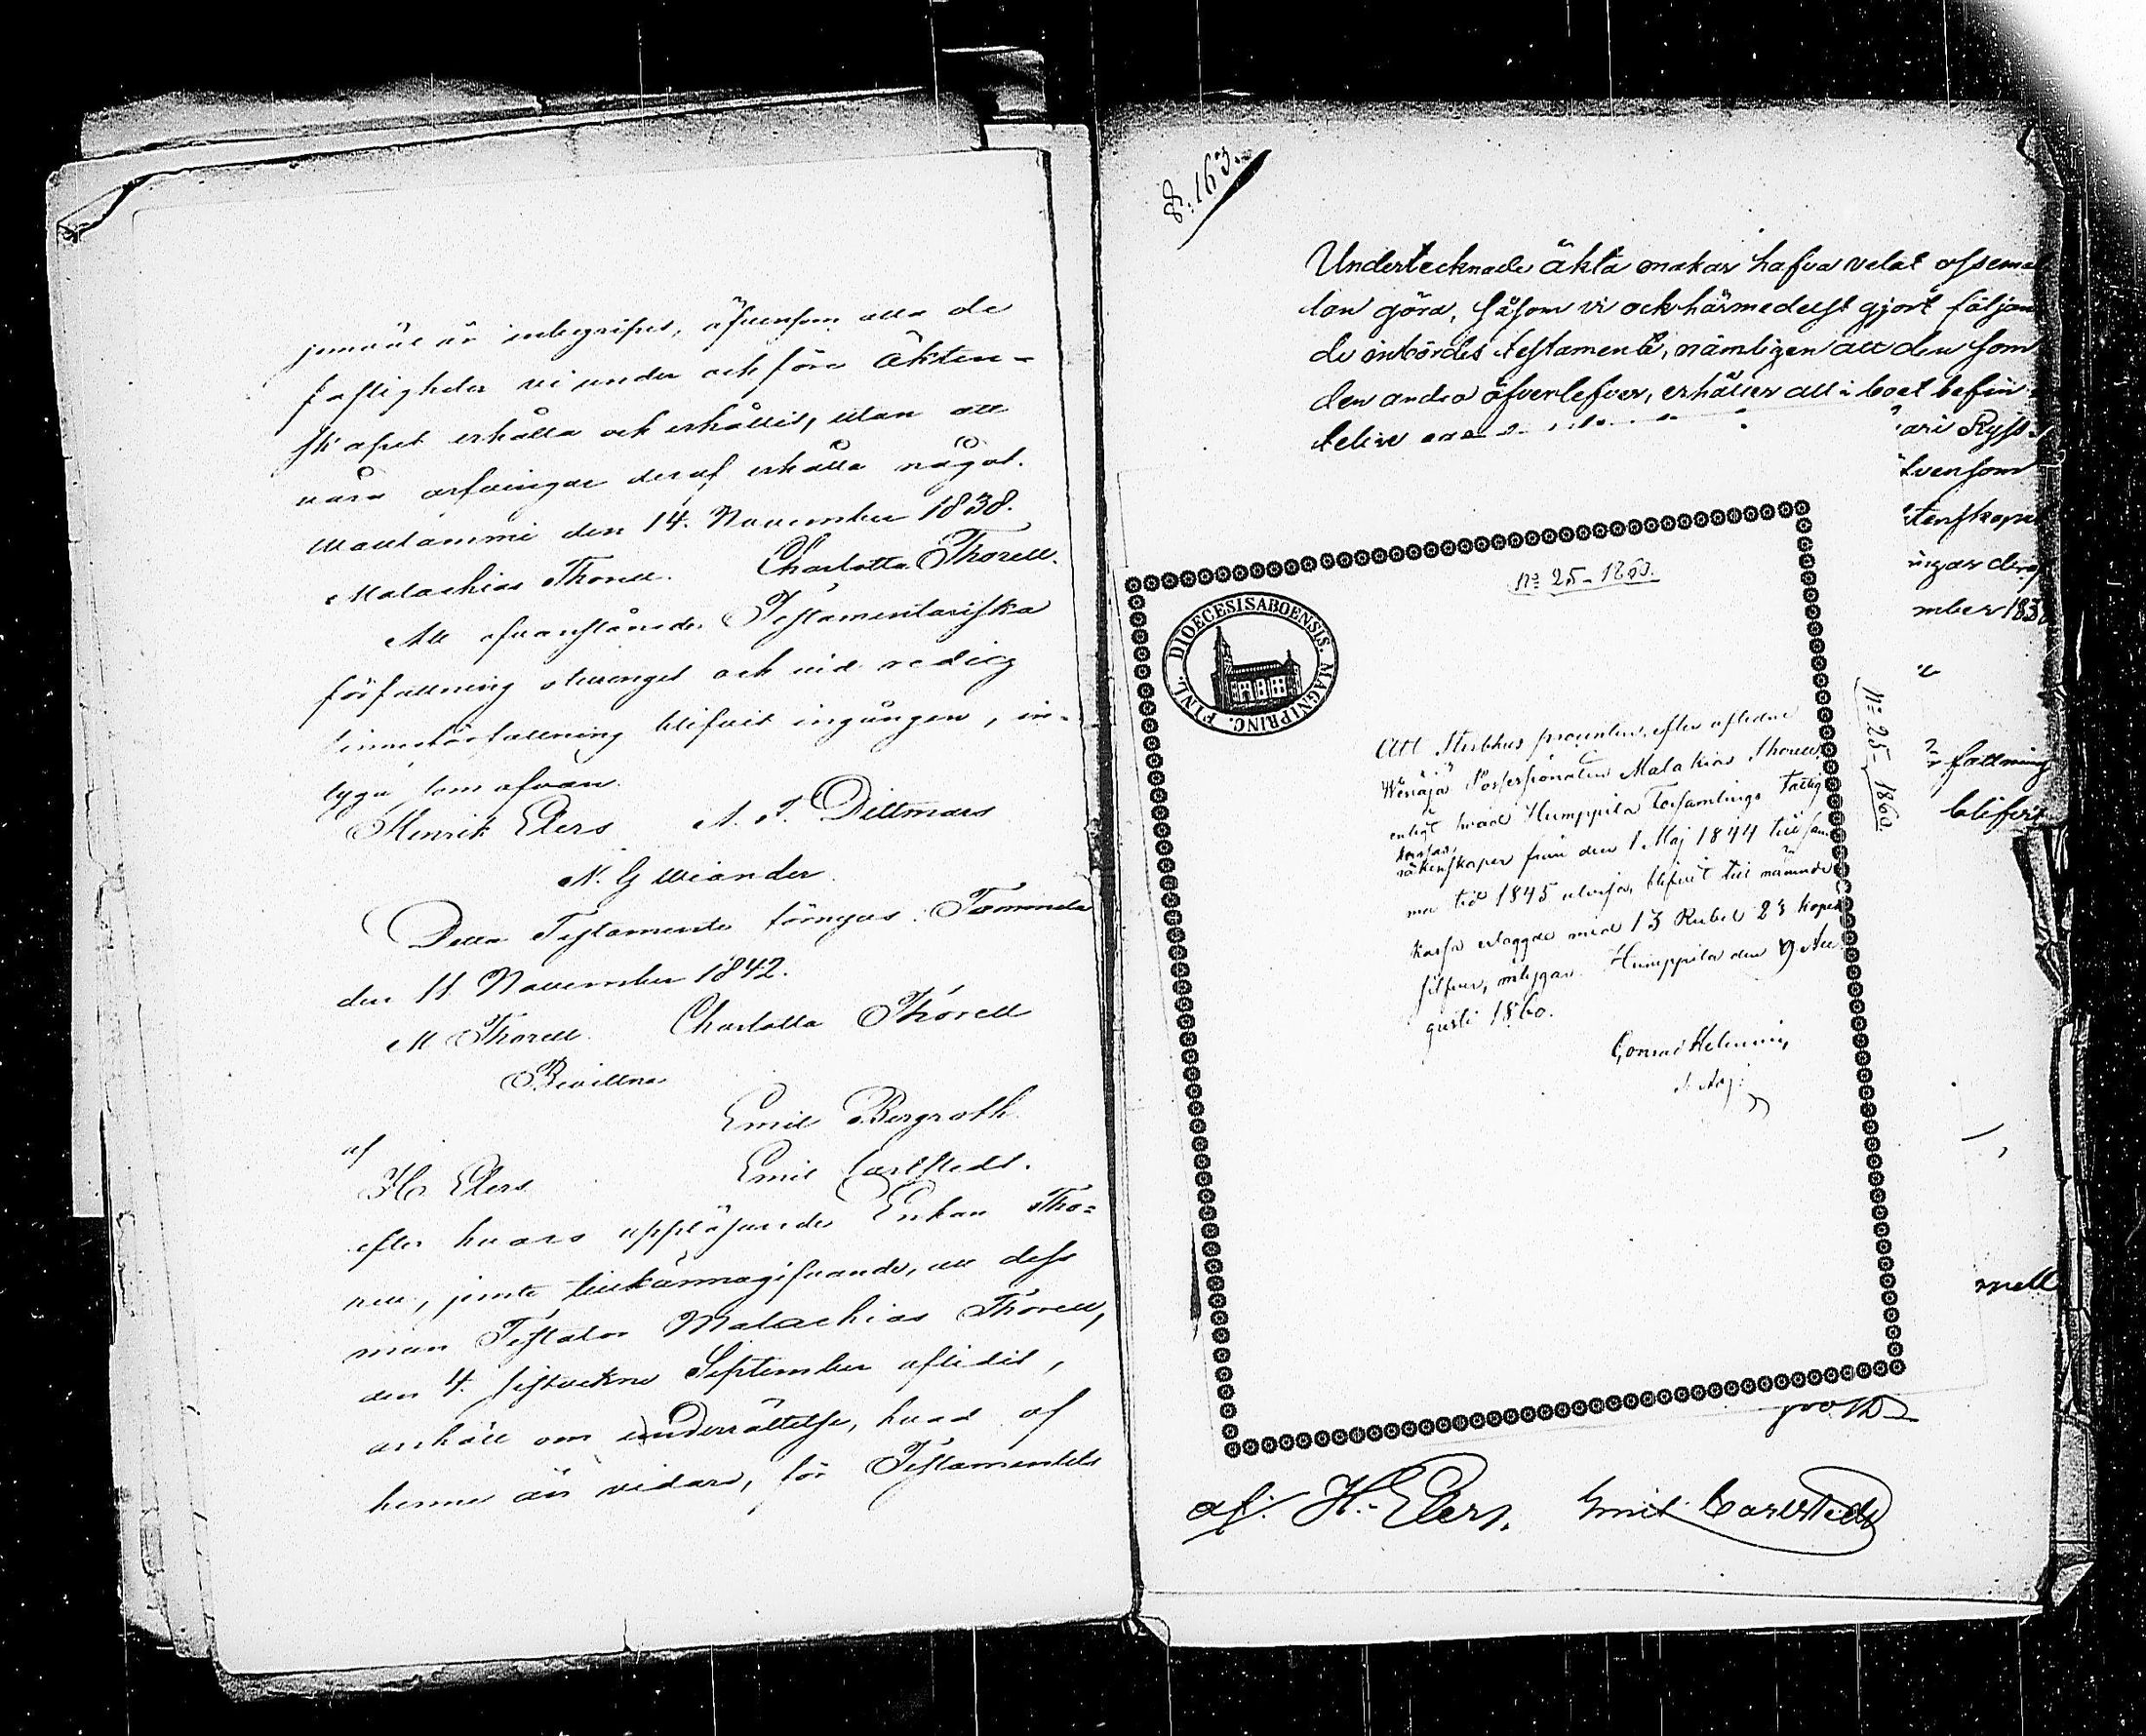 jemväl är inbegripet, äfvensom alla de
fastigheter vi under och före äkten-
skapet erhålla och erhållit, utan att
våra arfvingar deraf erhålla något.
den 14. November 1838.
Malachias Thorell. Charlotta Thorell.
Att ofvanstående Testamentariska
författning otvunget och vid redig
sinnesförfattning blifvit ingången, in-
tyga som ofvan.
Henrik Elers A. F. Dittmars
N. G Wiander
Detta Testamente förnyas. Tammela
den 11 November 1842.
M Thorell. Charlotta Thorell
Bevittna
Emil Bergroth
af
H. Elers Emil Carlstedt.
efter hvars uppläsande Enkan Tho=
rell, jemte tillkännagifvande, att dess
man Testator Malachias Thorell,
den 4. sistvekne September aflidit,
anhöll om underrättelse, hvad af
henne än vidare, för Testamentets
8:163.
Undertecknade äkta makar hafva velat
tan göra, såsom vi ock härmedelst gjort följan
de inbördes testamente, nämligen att den som
den andra öfverlefver, erhåller all i boet befin
telive
ari Ryss-
tvensom
tenskapet
ingar deraf
mber 183
fattning
blifvit
N:o 25-1860.
N:o 25-1860.
DIOECESIS ABOENSIS MAGNI PRINC. FINL.
Att Sterbhus procenten efter aflidne
Possessionaten Malakias Thorell
enligt hvad Humppila Församlings Fattig
kassas
räkenskaper från den 1 Maj 1844 till sam
ma tid 1845 utvisa, blifvit till nämnde
kassa erlagde med 13 Rubel 23 kopek
silfver, intygar. Humppila den 9 Au
gusti 1860.
Conrad Helenius
mell
af: H. Elers. Emil Carlstedt